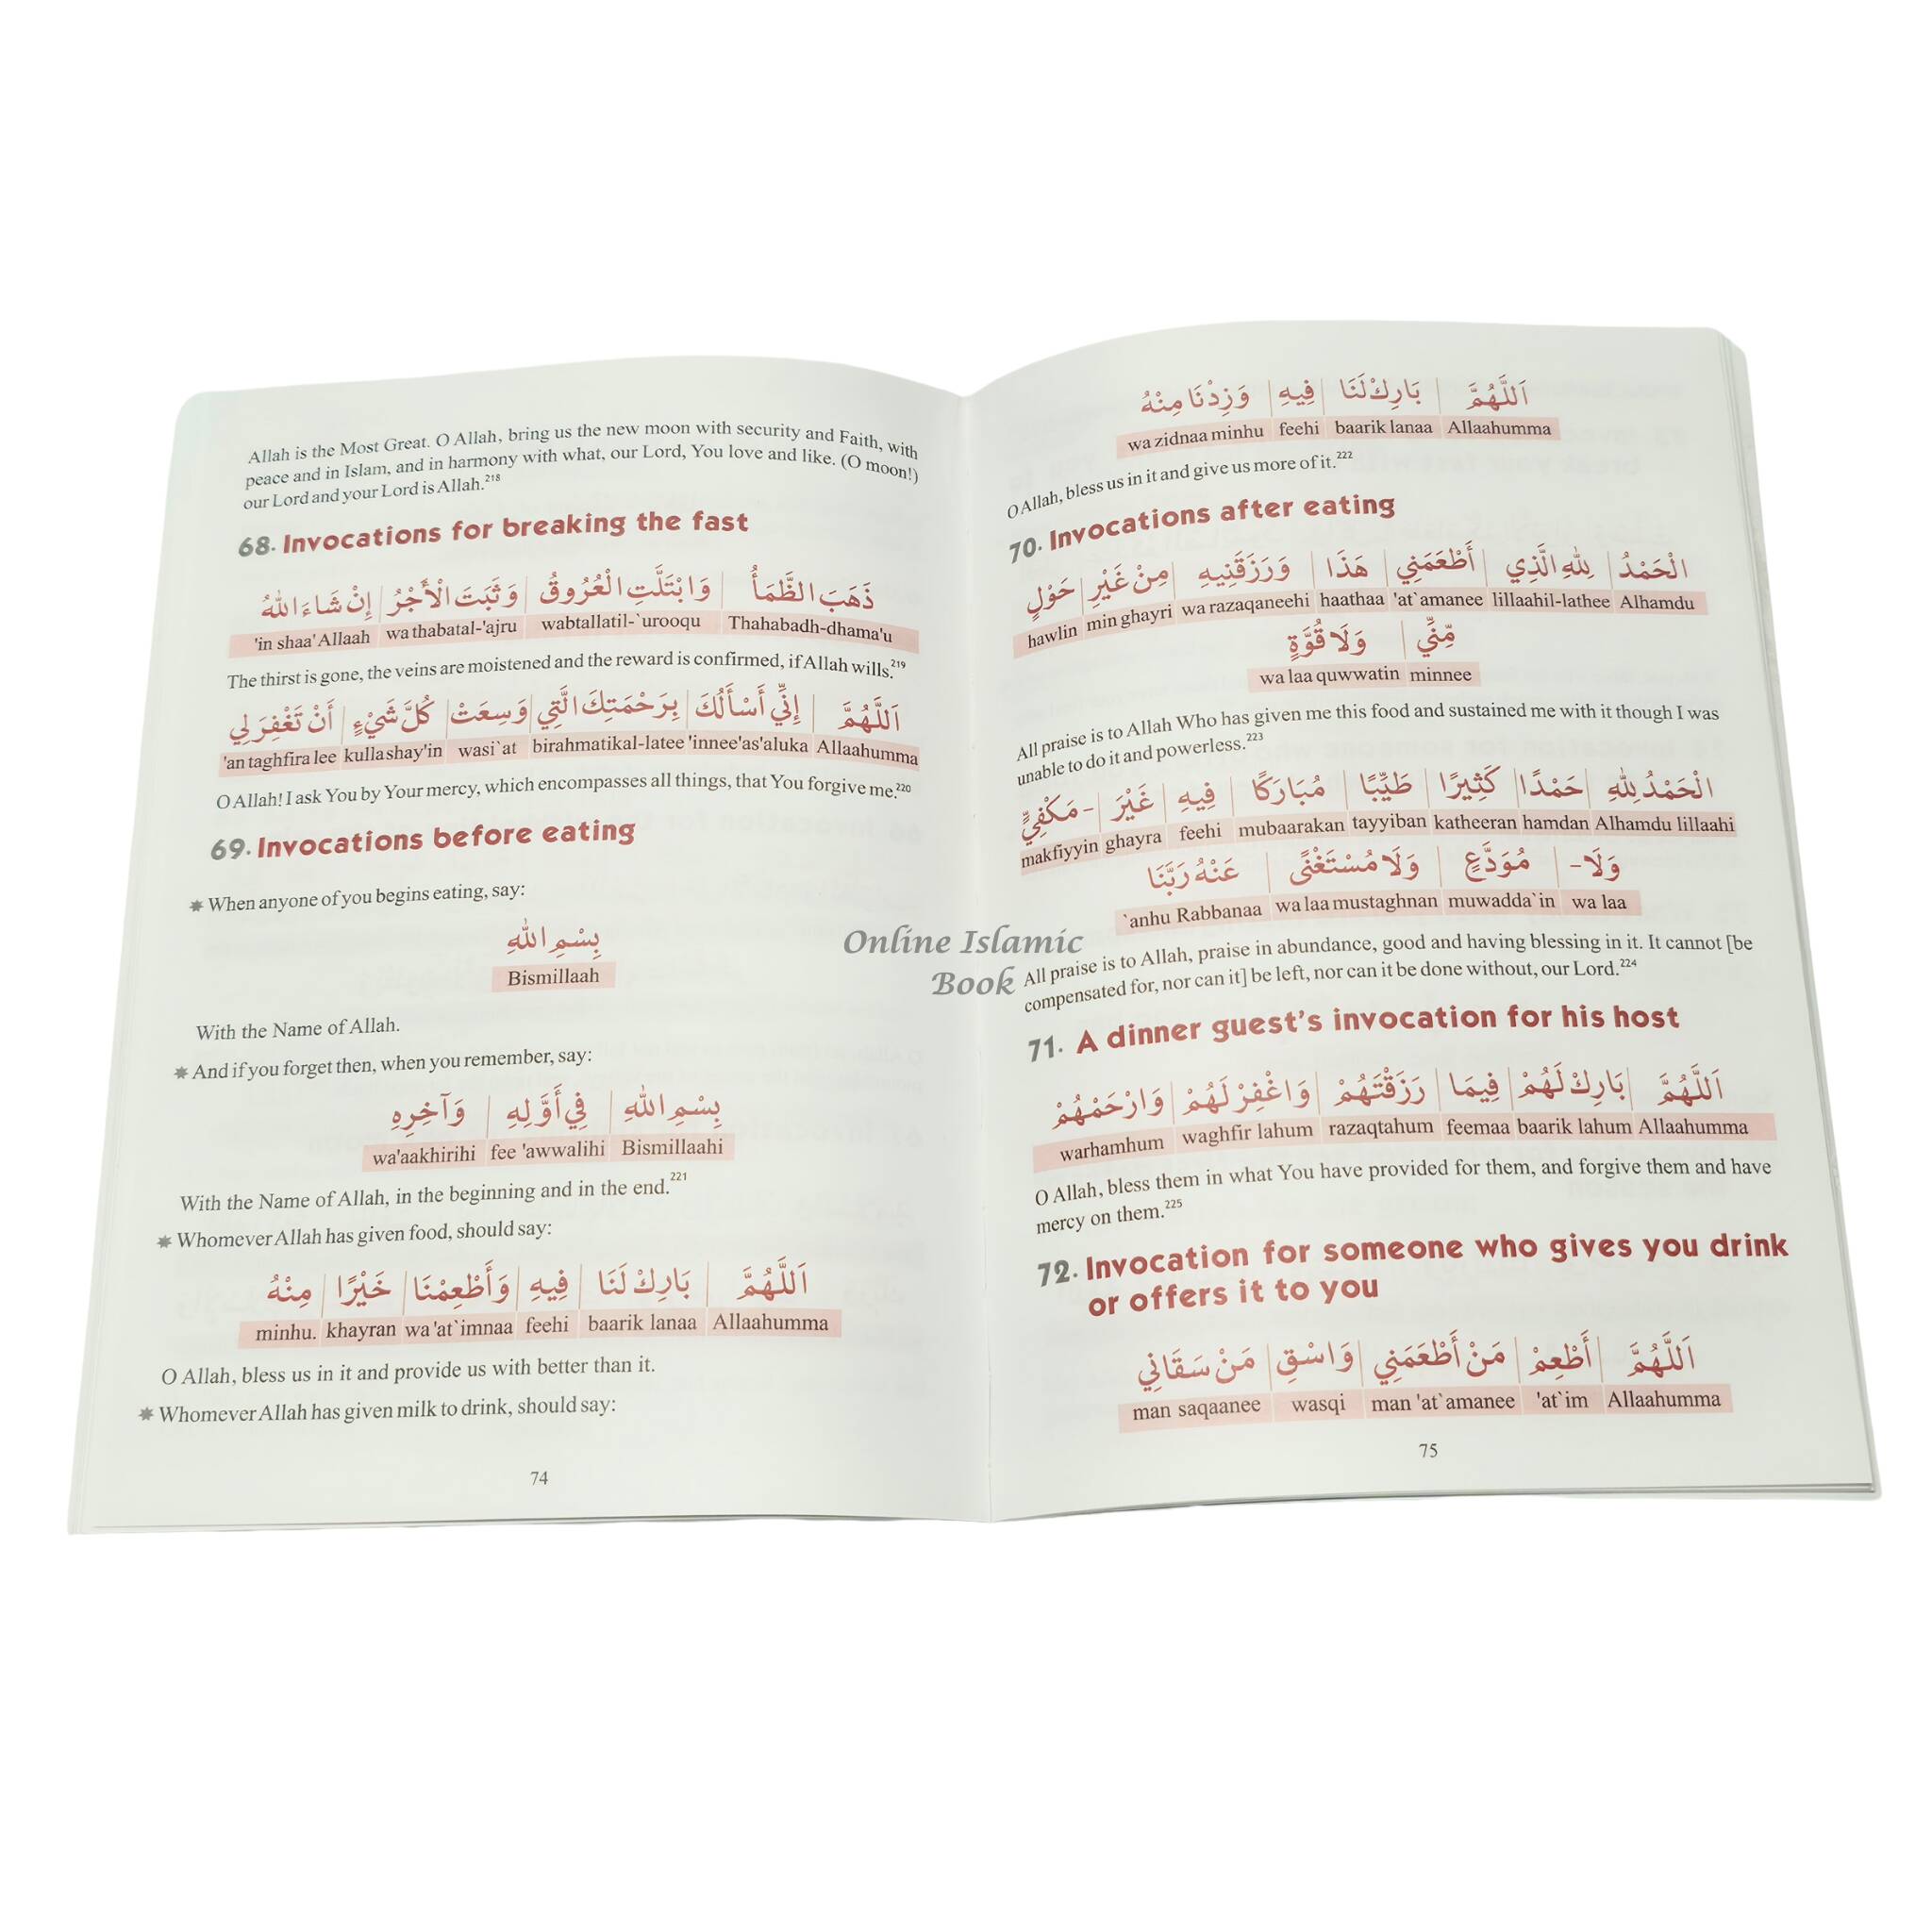 Allah is the Most Great. O Allah, bring us the new moon with security and Faith, with
peace and in Islam, and in harmony with what, our Lord, You love and like. (O moon!)
our Lord and your Lord is Allah.²¹⁸
68. Invocations for breaking the fast
ذَهَبَ الظَّمَأُ وَابْتَلَّتِ الْعُرُوقُ وَثَبَتَ الْأَجْرُ إِنْ شَاءَ اللهُ
'in shaa' Allaah wa thabatal-'ajru wabtallatil-`urooqu Thahabadh-dhama'u
The thirst is gone, the veins are moistened and the reward is confirmed, if Allah wills.²¹⁹
اَللَّهُمَّ إِنِّي أَسْأَلُكَ بِرَحْمَتِكَ الَّتِي وَسِعَتْ كُلَّ شَيْءٍ أَنْ تَغْفِرَ لِي
'an taghfira lee kulla shay'in wasi`at birahmatikal-latee 'innee 'as'aluka Allaahumma
O Allah! I ask You by Your mercy, which encompasses all things, that You forgive me.²²⁰
69. Invocations before eating
✷ When anyone of you begins eating, say:
بِسْمِ اللهِ
Bismillaah
With the Name of Allah.
✷ And if you forget then, when you remember, say:
بِسْمِ اللهِ فِي أَوَّلِهِ وَآخِرِهِ
wa'aakhirihi fee 'awwalihi Bismillaahi
With the Name of Allah, in the beginning and in the end.²²¹
✷ Whomever Allah has given food, should say:
اَللَّهُمَّ بَارِكْ لَنَا فِيهِ وَأَطْعِمْنَا خَيْرًا مِنْهُ
minhu. khayran wa 'at`imnaa feehi baarik lanaa Allaahumma
O Allah, bless us in it and provide us with better than it.
✷ Whomever Allah has given milk to drink, should say:
74
اَللَّهُمَّ بَارِكْ لَنَا فِيهِ وَزِدْنَا مِنْهُ
wa zidnaa minhu feehi baarik lanaa Allaahumma
O Allah, bless us in it and give us more of it.²²²
70. Invocations after eating
الْحَمْدُ لِلهِ الَّذِي أَطْعَمَنِي هَذَا وَرَزَقَنِيهِ مِنْ غَيْرِ حَوْلٍ
hawlin min ghayri wa razaqaneehi haathaa 'at`amanee lillaahil-lathee Alhamdu
مِّنِّي وَلَا قُوَّةٍ
wa laa quwwatin minnee
All praise is to Allah Who has given me this food and sustained me with it though I was
unable to do it and powerless.²²³
الْحَمْدُ لِلهِ حَمْدًا كَثِيرًا طَيِّبًا مُبَارَكًا فِيهِ غَيْرَ - مَكْفِيٍّ
makfiyyin ghayra feehi mubaarakan tayyiban katheeran hamdan Alhamdu lillaahi
وَلَا - مُوَدَّعٍ وَلَا مُسْتَغْنًى عَنْهُ رَبَّنَا
`anhu Rabbanaa wa laa mustaghnan muwadda`in wa laa
All praise is to Allah, praise in abundance, good and having blessing in it. It cannot [be
compensated for, nor can it] be left, nor can it be done without, our Lord.²²⁴
71. A dinner guest's invocation for his host
اَللَّهُمَّ بَارِكْ لَهُمْ فِيمَا رَزَقْتَهُمْ وَاغْفِرْ لَهُمْ وَارْحَمْهُمْ
warhamhum waghfir lahum razaqtahum feemaa baarik lahum Allaahumma
O Allah, bless them in what You have provided for them, and forgive them and have
mercy on them.²²⁵
72. Invocation for someone who gives you drink
or offers it to you
اَللَّهُمَّ أَطْعِمْ مَنْ أَطْعَمَنِي وَاسْقِ مَنْ سَقَانِي
man saqaanee wasqi man 'at`amanee 'at`im Allaahumma
75
Online Islamic
Book